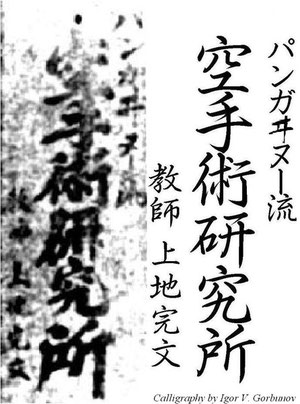 パンガヰヌー流
空手術研究所
教師 上地完文
パンガヰヌー流
空手術研究所
教師 上地完文
Calligraphy by Igor V. Gorbunov